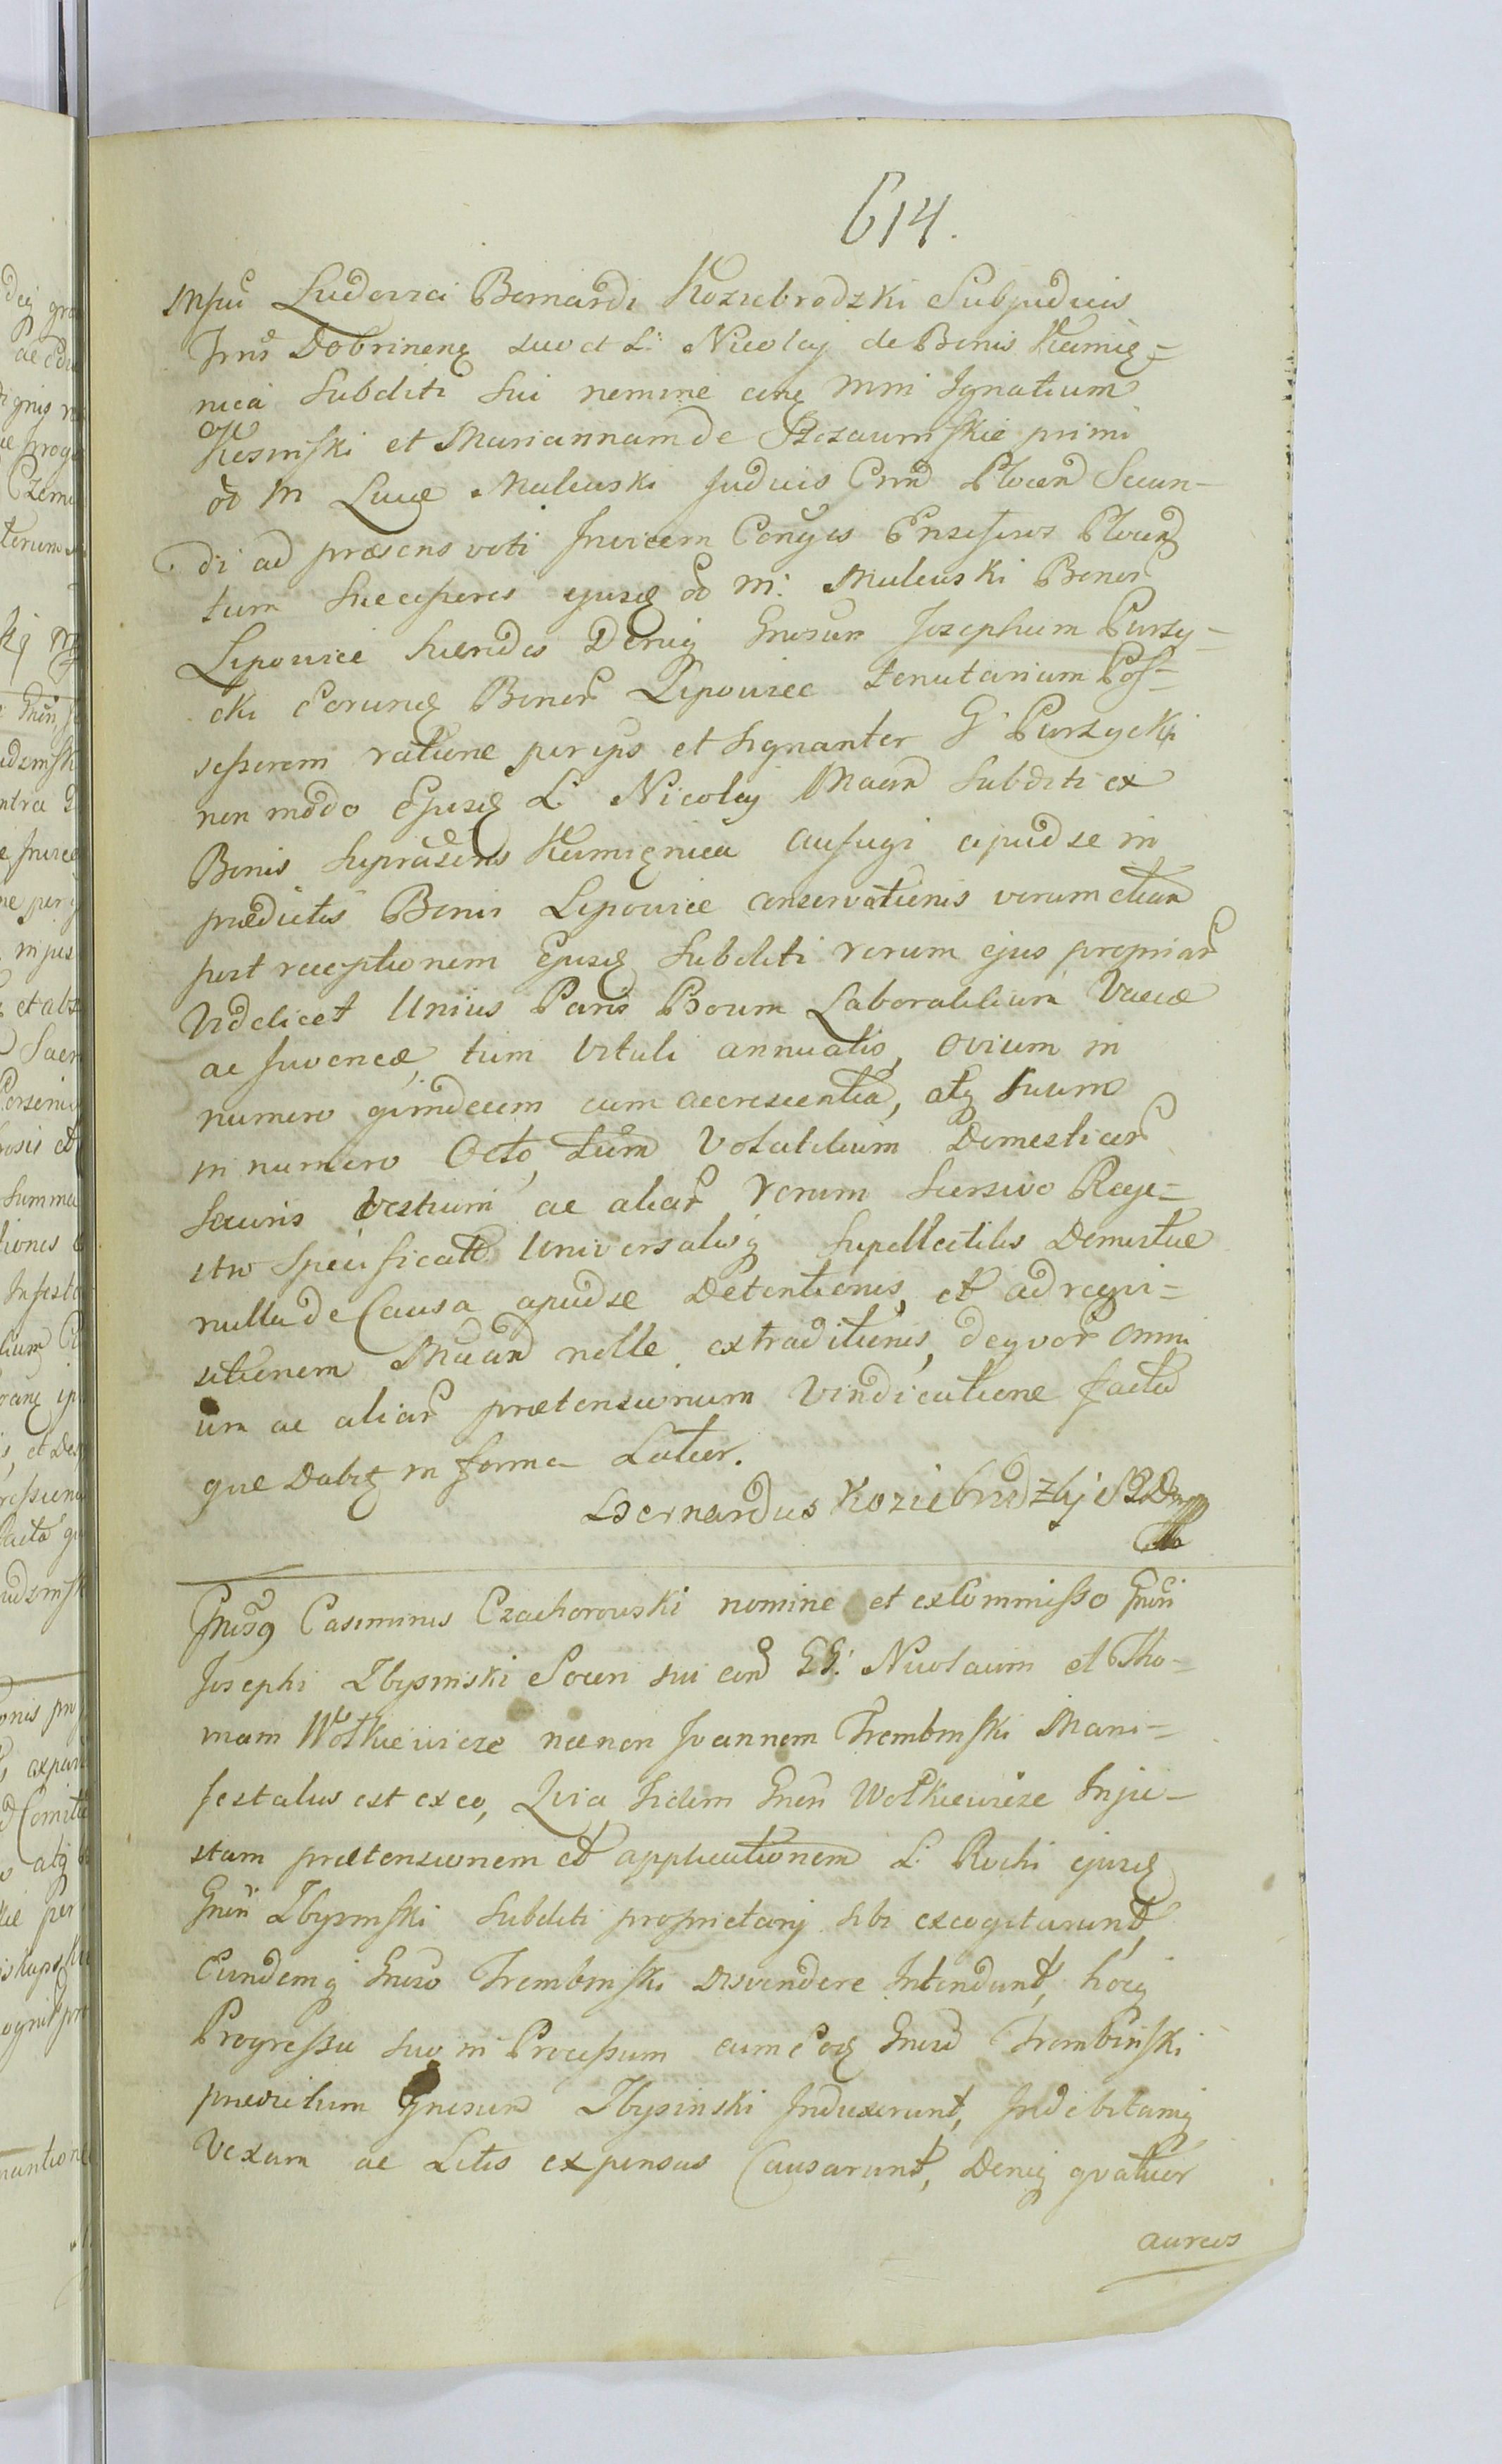 614.
Mfici Ludovici Bernardi Koziebrodzki Subjudicis
Trris Dobrinens suo et L: Nicolaj de Bonis Kamię=
nica Subditi sui nomine cirq Mm Ignatium
Kosinski et Mariannam de Rzezawinskie primi
od M Lucæ Malewski Judicis Crim Plocen Secun-
di ad præsens voti Invicem Conges Ensiferos Plocenq
tum Successores ejusq od M: Malewski Bonor
Lipowiec hæredes Deniq Gnosum Josephum Purzy-
cki Eorunq Bonor Lipowiec tenutarium Pos-
sessorem ratione per ips et signanter G Purzycki
non modo Ejusq L: Nicolaj Maan Subditi ex
Bonis supradictis Kamięnica aufugi apud se in
prædictis Bonis Lipowiec conservationis verum etiam
post receptionem Ejusq Subditi rerum ejus propriar
Videlicet Unius Paris Boum Laborabilium Vaccæ
ac Juvencæ, tum Vituli annualis, Ovium in
numero quindecem cum accrescentia, atq Suum
in numero Octo, tum Volatilium Domesticar
Securis Vestium ac aliar rerum sursivo Rege-
stro specificatt Universalisq Supellectilis Domesticæ
nulla de Causa apud se Detentionis, et ad requi-
sitionem Maan nolle extraditionis, de qvor omni
um ac aliar prætensionum Vindicatione facta
que Dabit in forma Latior.
Bernardus Koziebrodzkj SZD
Gnosq Casimirus Czachorowski nomine et ex Commisso Gnosi
Josephi Zbyszinski Soceri sui con GG: Nicolaum et Tho-
mam Wołkiewicze necnon Joannem Trembinski Mani-
festatus est ex eo, Qvia Iidem Gnosi Wołkiewicze Inju-
stam prætensionem et applicationem L: Rochi ejusq
Gnosi Zbyszinski Subditi proprietarij sibi excogitarunt,
Eundemq Gnoso Trembinski disvendere Intendunt, hocq
Progressu suo in Processum cum Eoq Gnoso Trembinski
prævietum Gnosum Zbysinski Induxerunt, Indebitamq
Vexam ac Litis expensas Causarunt, Deniq qvatuor
aureos